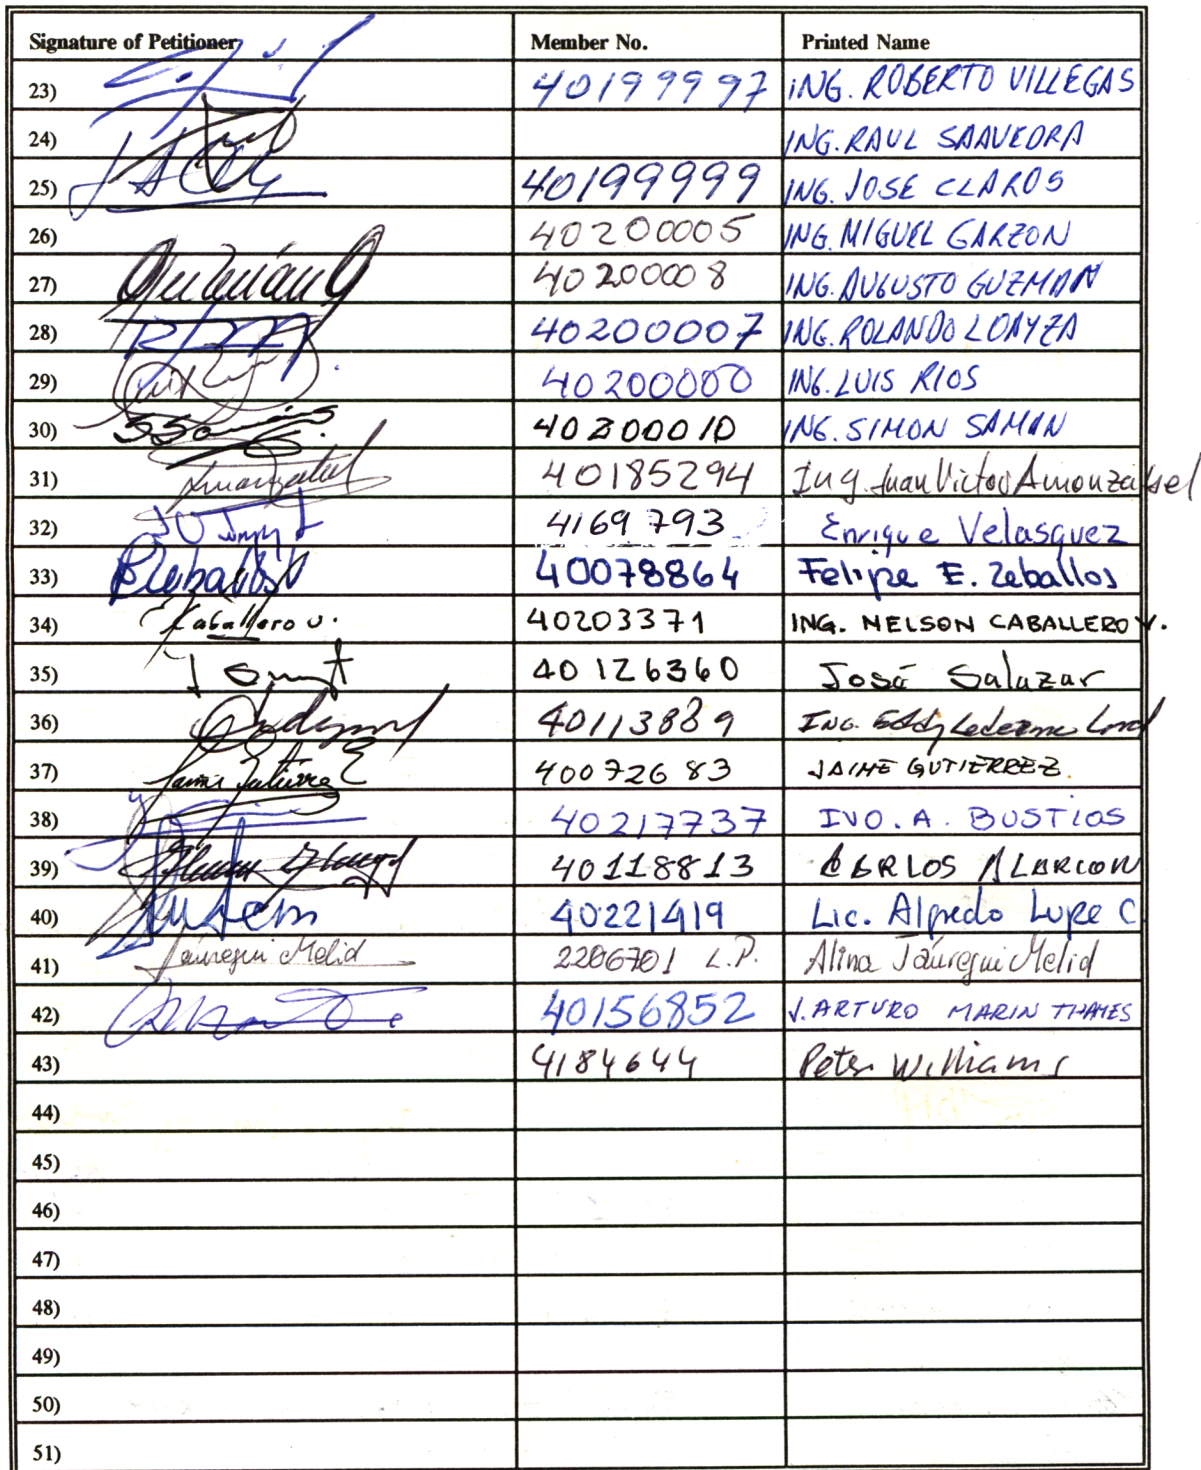 Signature of Petitioner Member No. Printed Name
23) 40199997 ING. ROBERTO VILLEGAS
24) ING. RAUL SAAVEDRA
25) 40199999 ING. JOSE CLAROS
26) 40200005 ING. MIGUEL GARZON
27) 40200008 ING. AUGUSTO GUZMAN
28) 40200007 ING. ROLANDO LOAYZA
29) 40200000 ING. LUIS RIOS
30) 40200010 ING. SIMON SAMAN
31) 40185294 Ing. Juan Victor Amonzabel
32) 4169793 Enrique Velasquez
33) Zeballos 40078864 Felipe E. Zeballos
34) Caballero v. 40203371 ING. NELSON CABALLERO V.
35) 40126360 José Salazar
36) 40113889 ING. Eddy Ledezma
37) Jaime Gutierrez 40072683 JAIME GUTIERREZ
38) 40217737 IVO. A. BUSTIOS
39) 40118813 CARLOS ALARCON
40) 40221419 Lic. Alfredo Lupe C
41) Jauregui Melid 2206701 L.P. Alina Jáuregui Melid
42) 40156852 J. ARTURO MARIN THAMES
43) 4184644 Peter Williams
44)
45)
46)
47)
48)
49)
50)
51)